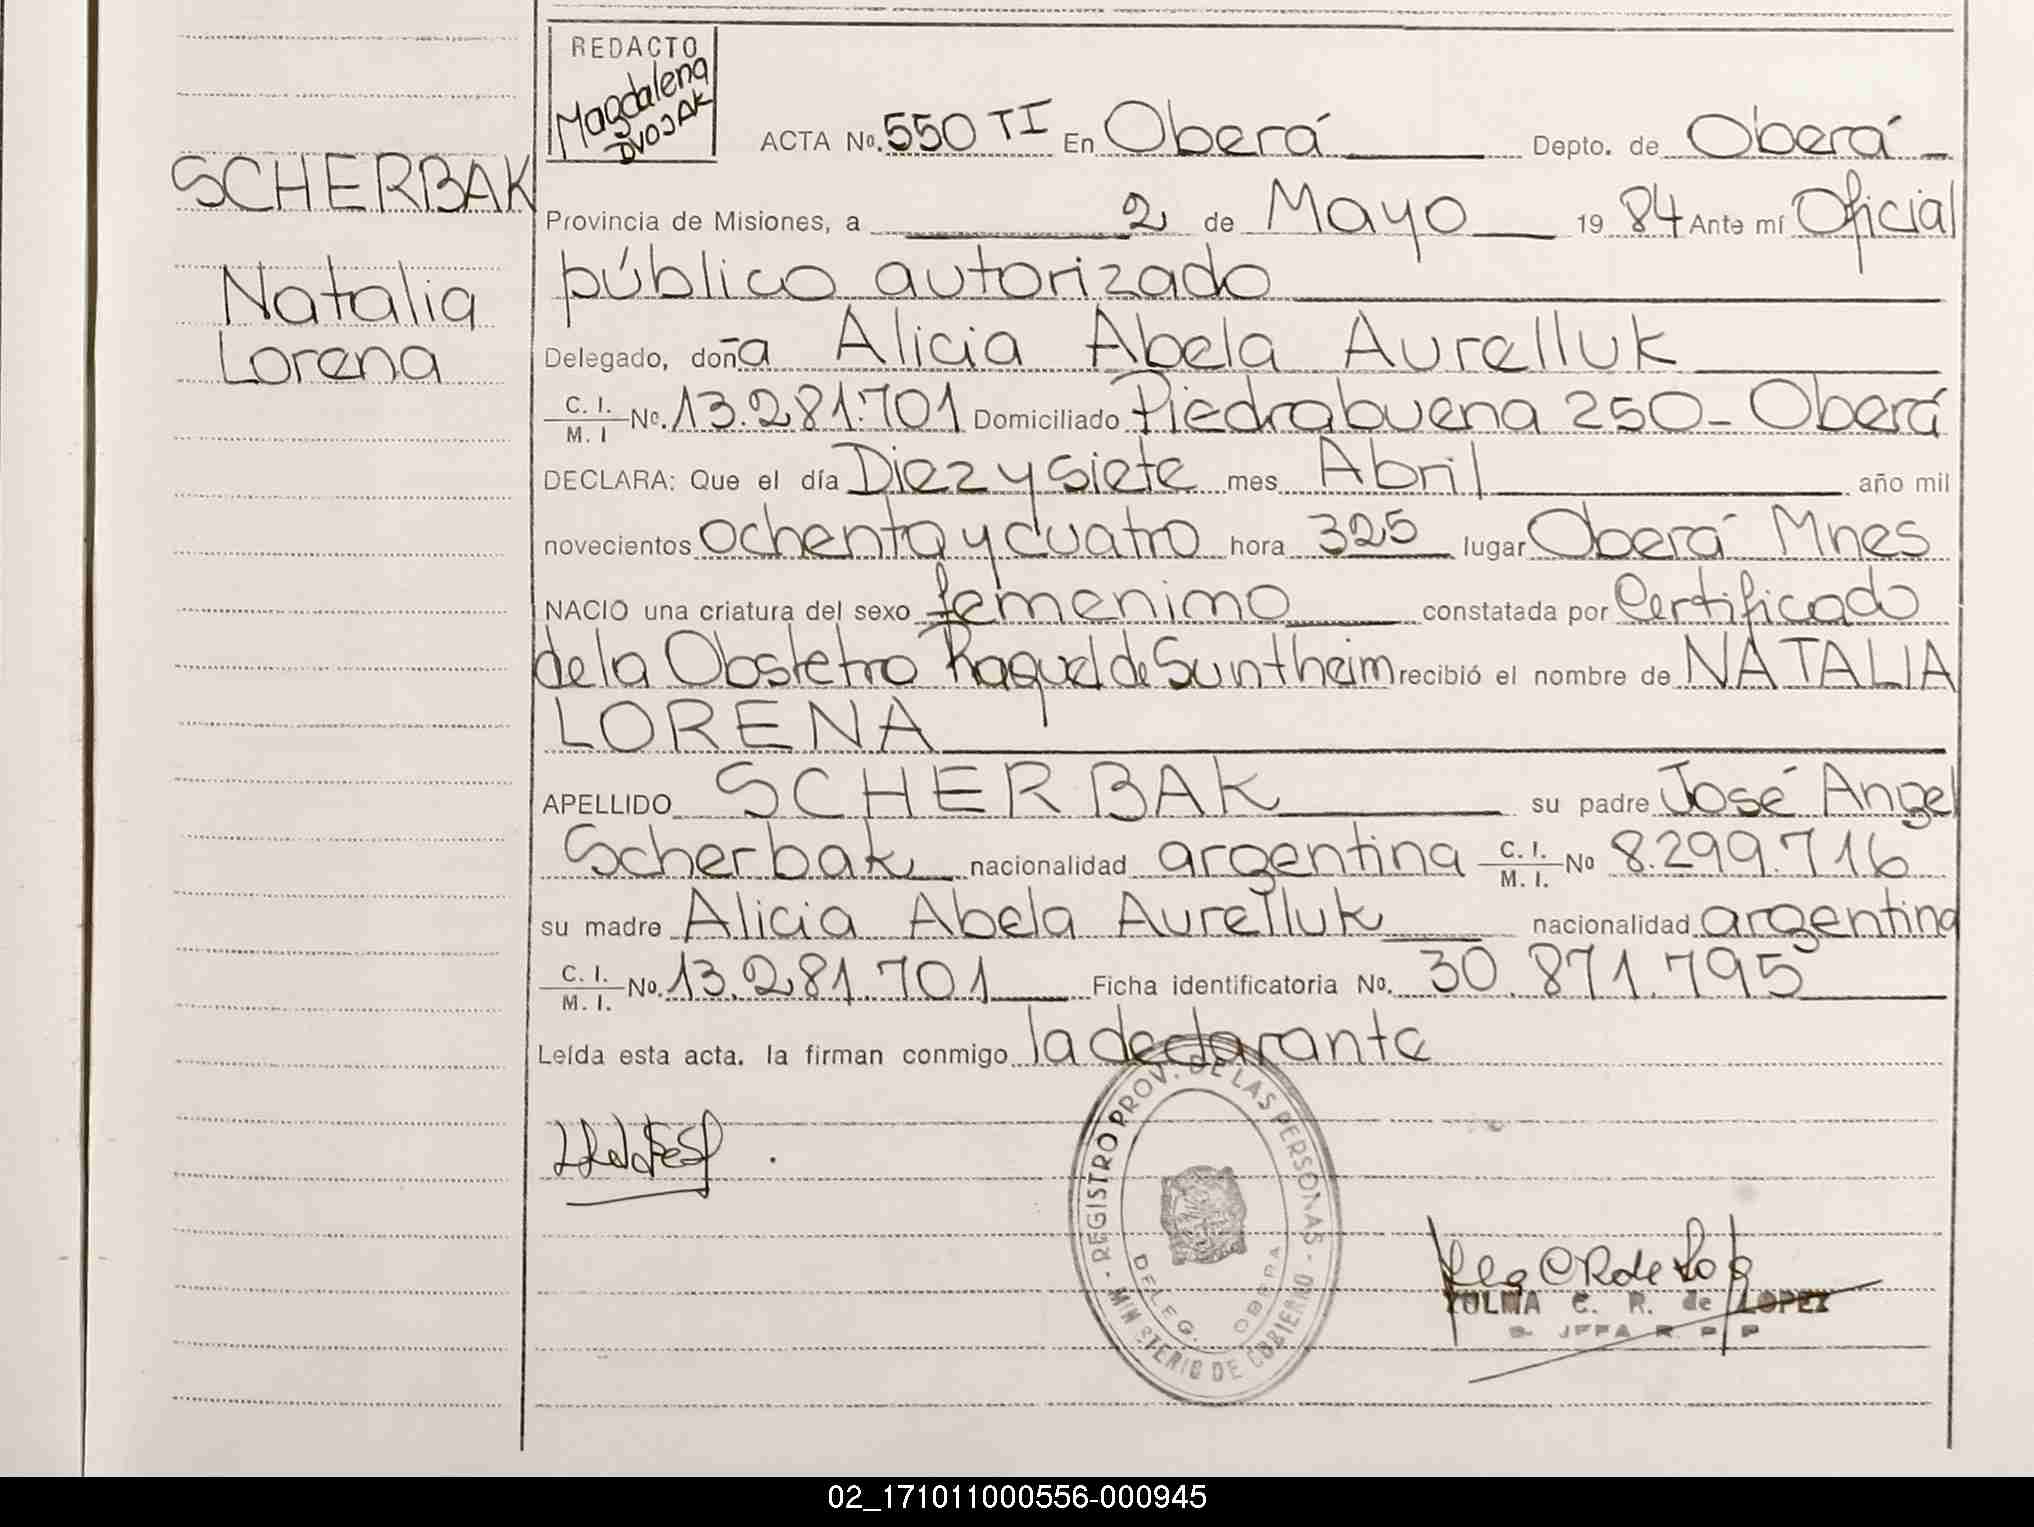 REDACTO
Magdalena
DVOJAK
ACTA No. 550 TI En Oberá Depto. de Oberá
SCHERBAK
Provincia de Misiones, a 2 de Mayo 19 84 Ante mí Oficial
Natalia
público autorizado
Lorena
Delegado, doña Alicia Abela Aurelluk
C. I.
M. I No. 13.281.701 Domiciliado Piedrabuena 250 - Oberá
DECLARA: Que el día Diez y siete mes Abril año mil
novecientos ochenta y cuatro hora 325 lugar Oberá Mnes
NACIO una criatura del sexo femenimo constatada por Certificado
de la Obstetro Raquel de Suntheim recibió el nombre de NATALIA
LORENA
APELLIDO SCHERBAK su padre José Angel
Scherbak nacionalidad argentina C. I.
M. I. No 8.299.716
su madre Alicia Abela Aurelluk nacionalidad argentina
C. I.
M. I. No. 13.281.701 Ficha identificatoria No. 30.871.795
Leída esta acta. la firman conmigo la declarante
REGISTRO PROV. DE LAS PERSONAS - MINISTERIO DE GOBIERNO -
DELEG. OBERA
ZULMA C. R. de LOPEZ
JEFA R. P. P
02_171011000556-000945